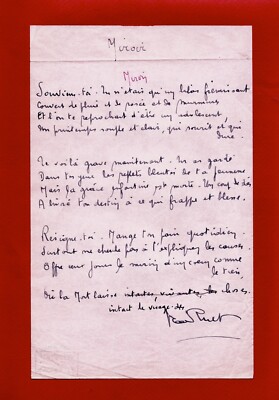 Miroir
Miroir
Souviens-toi. Tu n'étais qu'un lilas frémissant
Couvert de pluie et de rosée et de murmures
Et l'on te reprochait d'être un adolescent,
Un printemps souple et clair, qui sourit et qui
dure.
Te voilà grave maintenant. Tu as gardé
Dans ton œil les reflets bleutés de ta jeunesse
Mais la grâce enfantine est morte. Un coup de dés
A livré ton destin à ce qui frappe et blesse.
Résigne-toi. Mange ton pain quotidien,
Surtout ne cherche pas à t'expliquer les causes.
Offre aux jours le murmure d'un cœur comme
le tien,
Où la Mort laisse intactes, vivantes, les choses.
intact le visage des